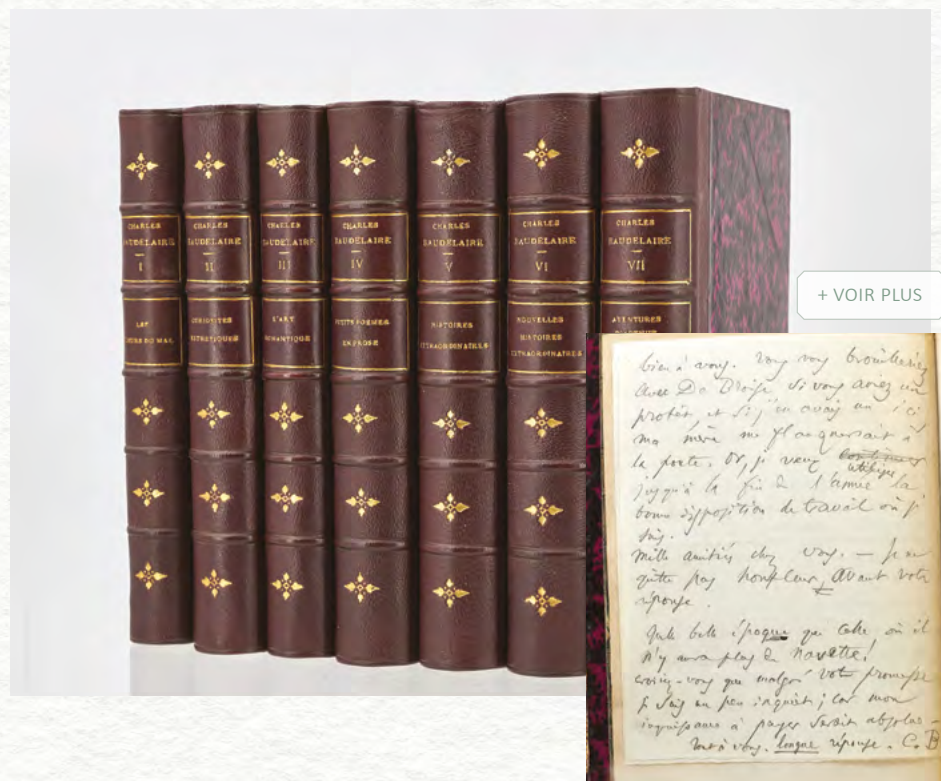 CHARLES
BAUDELAIRE
I
LES
FLEURS DU MAL
CHARLES
BAUDELAIRE
II
CURIOSITES
ESTHETIQUES
CHARLES
BAUDELAIRE
III
L'ART
ROMANTIQUE
CHARLES
BAUDELAIRE
IV
PETITS POEMES
EN PROSE
CHARLES
BAUDELAIRE
V
HISTOIRES
EXTRAORDINAIRES
CHARLES
BAUDELAIRE
VI
NOUVELLES
HISTOIRES
EXTRAORDINAIRES
CHARLES
BAUDELAIRE
VII
AVENTURES
+ VOIR PLUS
bien à vous. Vous vous brouilleriez
avec De Broise si vous aviez un
protêt et si j'en avais un ici
ma mère me flanquerait à
la porte. Or, je veux utiliser
jusqu'à la fin de l'année la
bonne disposition de travail où j'
suis.
Mille amitiés chez vous. — Je ne
quitte pas Honfleur, avant votre
réponse.
Quelle belle époque que celle où il
n'y aura plus de navette!
croiriez-vous que malgré votre promesse
je suis un peu inquiet; car mon
impuissance à payer serait absolue —
Tout à vous. longue réponse. C. B